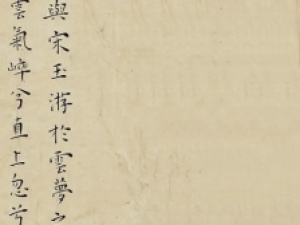 與宋玉游於雲夢之
雲氣崪兮直上忽兮